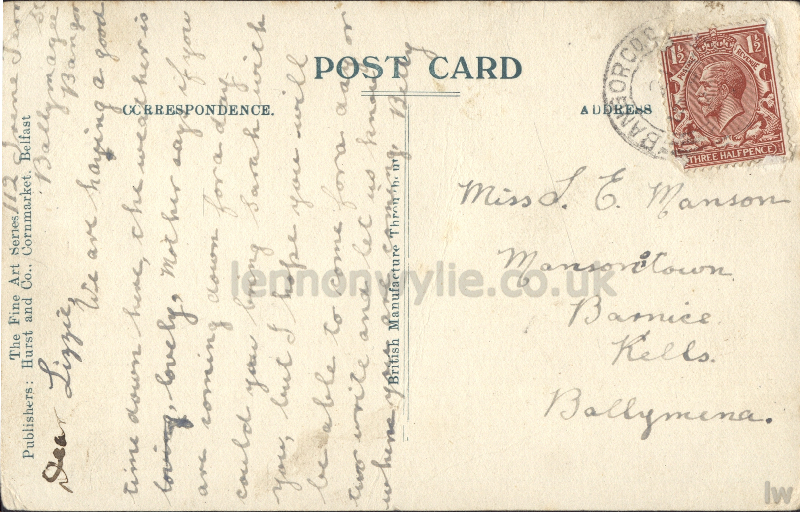 POST CARD
CORRESPONDENCE.
ADDRESS
The Fine Art Series.
Publishers: Hurst and Co., Cornmarket, Belfast
British Manufacture Throughout
112
Ballymagee St
Bangor
Dear Lizzie,
We are having a good
time down here, the weather is
loving, lovely, Mother says if you
are coming down for a day
could you bring Sarah with
you, but I hope you will
be able to come for a day or
two write and let us know
when you are coming Betty
Miss L. E. Manson
Mansonstown
Barnice
Kells.
Ballymena.
BANGOR CO
1½ 1½
POSTAGE REVENUE
THREE HALFPENCE
lennonwylie.co.uk
lw